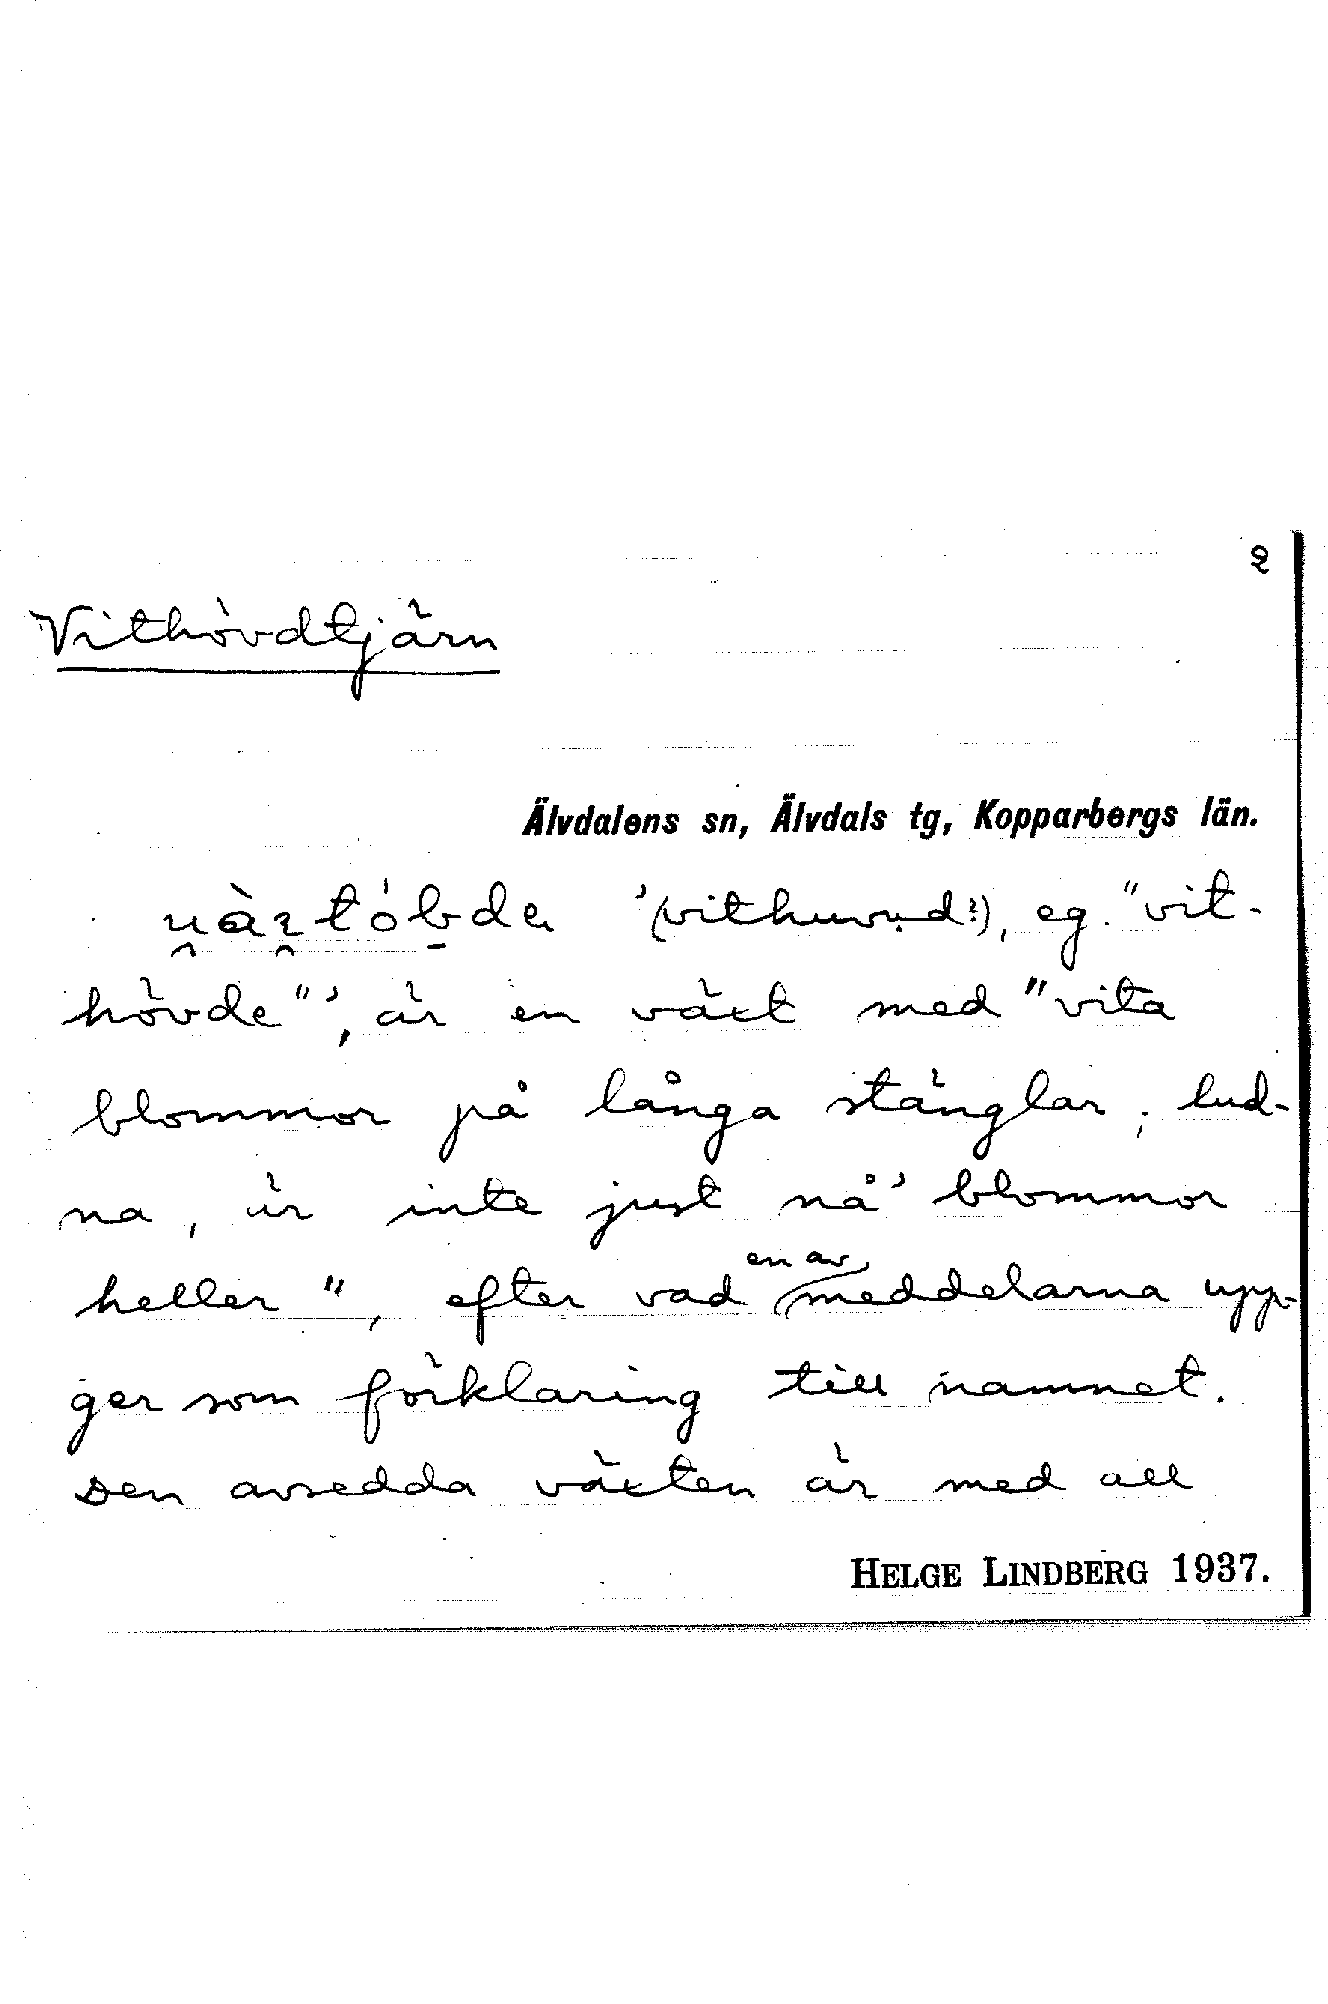 2
Vithövdtjärn
Älvdalens sn, Älvdals tg, Kopparbergs län.
'(vithuvud?), eg. "vit-
hövde"', är en växt med "vita
blommor på långa stänglar; lud-
na, är inte just nå' blommor
heller", efter vad en av meddelarna upp-
ger som förklaring till namnet.
Den avsedda växten är med all
HELGE LINDBERG 1937.